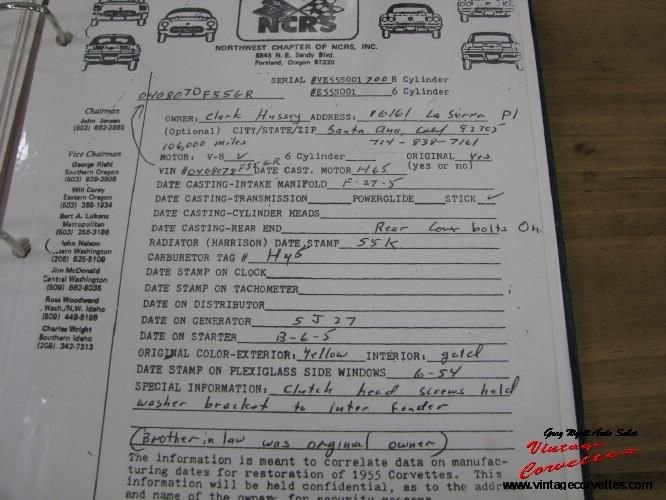 NCRS
NORTHWEST CHAPTER OF NCRS, INC.
8845 N. E. Sandy Blvd.
Portland, Oregon 97220
SERIAL #VE55S001 700 8 Cylinder
0408070F55GR #E55S001 6 Cylinder
OWNER: Clark Hussey ADDRESS: 10161 La Sierra Pl
(Optional) CITY/STATE/ZIP Santa Ana, Calif 92705
106,000 miles 714-838-7161
MOTOR: V-8 V 6 Cylinder ORIGINAL yes
(yes or no)
VIN #0408078F55GR DATE CAST. MOTOR H65
DATE CASTING-INTAKE MANIFOLD F-27-5
DATE CASTING-TRANSMISSION POWERGLIDE STICK ✓
DATE CASTING-CYLINDER HEADS
DATE CASTING-REAR END Rear Cover bolts On
RADIATOR (HARRISON) DATE STAMP 55K
CARBURETOR TAG # Hy6
DATE STAMP ON CLOCK
DATE STAMP ON TACHOMETER
DATE ON DISTRIBUTOR
DATE ON GENERATOR 5 J 27
DATE ON STARTER B-6-5
ORIGINAL COLOR-EXTERIOR: yellow INTERIOR: gold
DATE STAMP ON PLEXIGLASS SIDE WINDOWS 6-54
SPECIAL INFORMATION: Clutch head screws held
washer bracket to inter fender
(Brother in law was original owner)
The information is meant to correlate data on manufac-
turing dates for restoration of 1955 Corvettes. This
information will be held confidential, as to the addre
and name of the owner for security
Chairman
John Jensen
(503) 662-3885
Vice Chairman
George Riehl
Southern Oregon
(503) 929-3905
Will Carey
Eastern Oregon
(503) 386-1934
Bert A. Lukens
Metropolitan
(503) 256-3186
John Nelson
Western Washington
(206) 525-5109
Jim McDonald
Central Washington
(509) 662-8035
Ross Woodward
Wash./N.W. Idaho
(509) 448-8198
Charles Wright
Southern Idaho
(208) 342-7313
Greg Wyatt Auto Sales
Vintage
Corvettes
www.vintagecorvettes.com